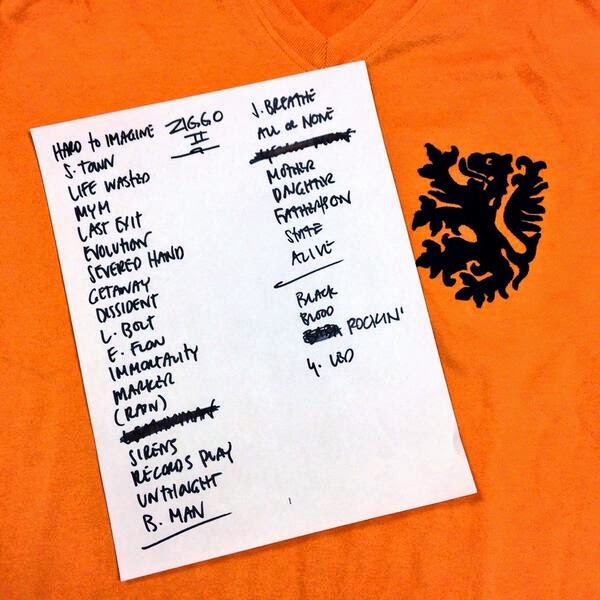 ZIGGO
II
HARD to IMAGINE
S. TOWN
LIFE WASTED
MYM
LAST EXIT
EVOLUTION
SEVERED HAND
GETAWAY
DISSIDENT
L. BOLT
E. FLOW
IMMORTALITY
MARKER
(RAIN)
SIRENS
RECORDS PLAY
UNTHINGHT
B. MAN
J. BREATHE
ALL OR NONE
MOTHER
DAUGHTER
FATHER/SON
STATE
ALIVE
BLACK
BLOOD
ROCKIN'
Y. LED